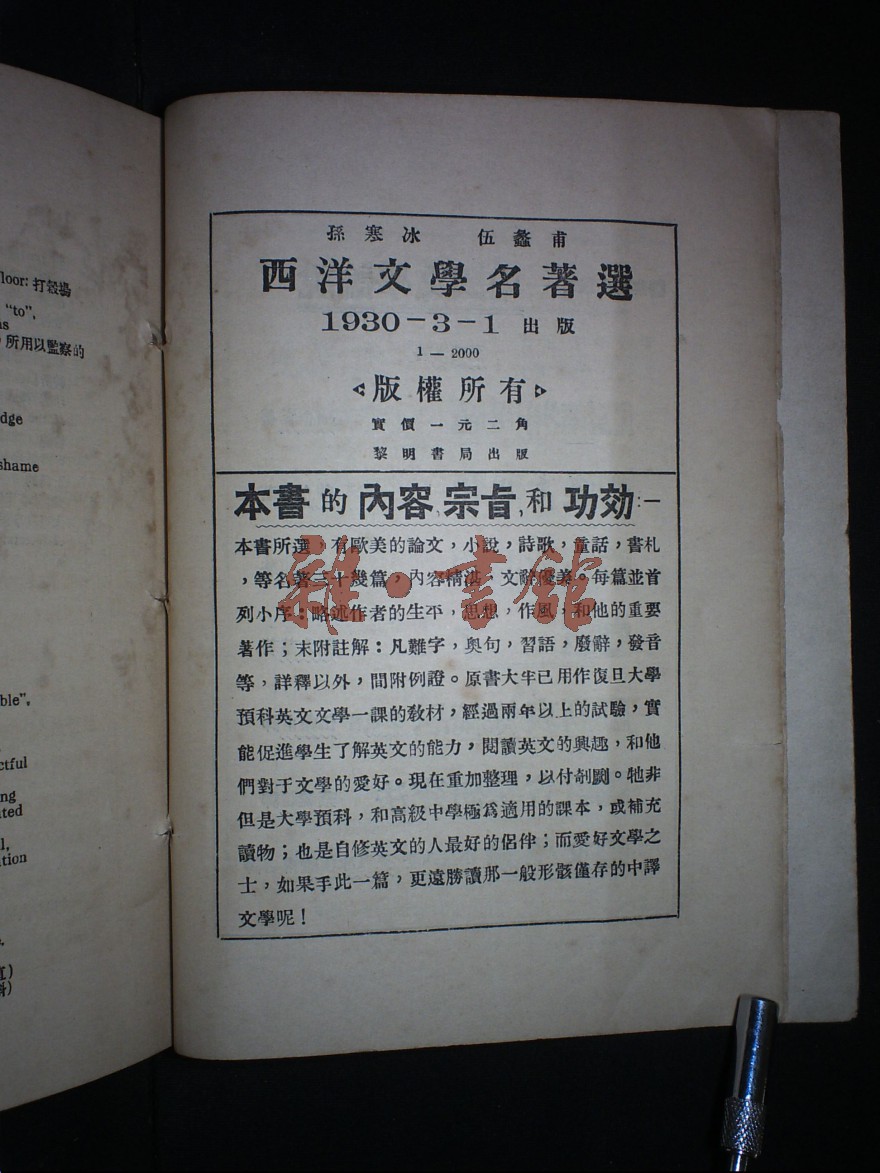 loor: 打穀場
"to",
ns
所用以監察的
dge
shame
ble",
ctful
ng
ated
l,
ation
孫寒冰　伍蠡甫
西洋文學名著選
1930-3-1 出版
1 — 2000
版權所有
實價一元二角
黎明書局出版
本書的內容,宗旨,和功効:—
本書所選，有歐美的論文，小說，詩歌，童話，書札
，等名著三十幾篇，內容精湛，文辭優美。每篇並首
列小序：略述作者的生平，思想，作風，和他的重要
著作；末附註解：凡難字，奧句，習語，廢辭，發音
等，詳釋以外，間附例證。原書大半已用作復旦大學
預科英文文學一課的教材，經過兩年以上的試驗，實
能促進學生了解英文的能力，閱讀英文的興趣，和他
們對于文學的愛好。現在重加整理，以付剞劂。牠非
但是大學預科，和高級中學極爲適用的課本，或補充
讀物；也是自修英文的人最好的侶伴；而愛好文學之
士，如果手此一篇，更遠勝讀那一般形骸僅存的中譯
文學呢！
雜·書館